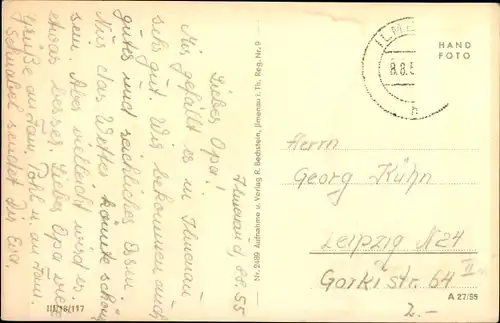 Ilmenau d. 8.8.55
Lieber Opa!
Mir gefällt es in Ilmenau
sehr gut. Wir bekommen auch
gutes und reichliches Essen.
Nur das Wetter könnte schön
sein. Aber vielleicht wird es
etwas besser. Lieber Opa viele
Grüße an Fam. Pohl u. an Fam.
Schnabel sendet Dir Eva.
III/18/117
Nr. 2189 Aufnahme u. Verlag R. Bechstein, Ilmenau i. Th. Reg. Nr. 9
ILME
8.8.5
HAND
FOTO
Herrn
Georg Kühn
Leipzig N 24
Gorkistr. 64 II
2.-
A 27/55